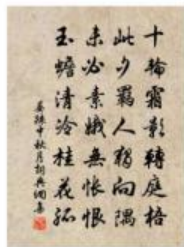 十輪霜影轉庭梧
此夕羈人獨向隅
未必素娥無悵恨
玉蟾清冷桂花孤
晏殊中秋月詞